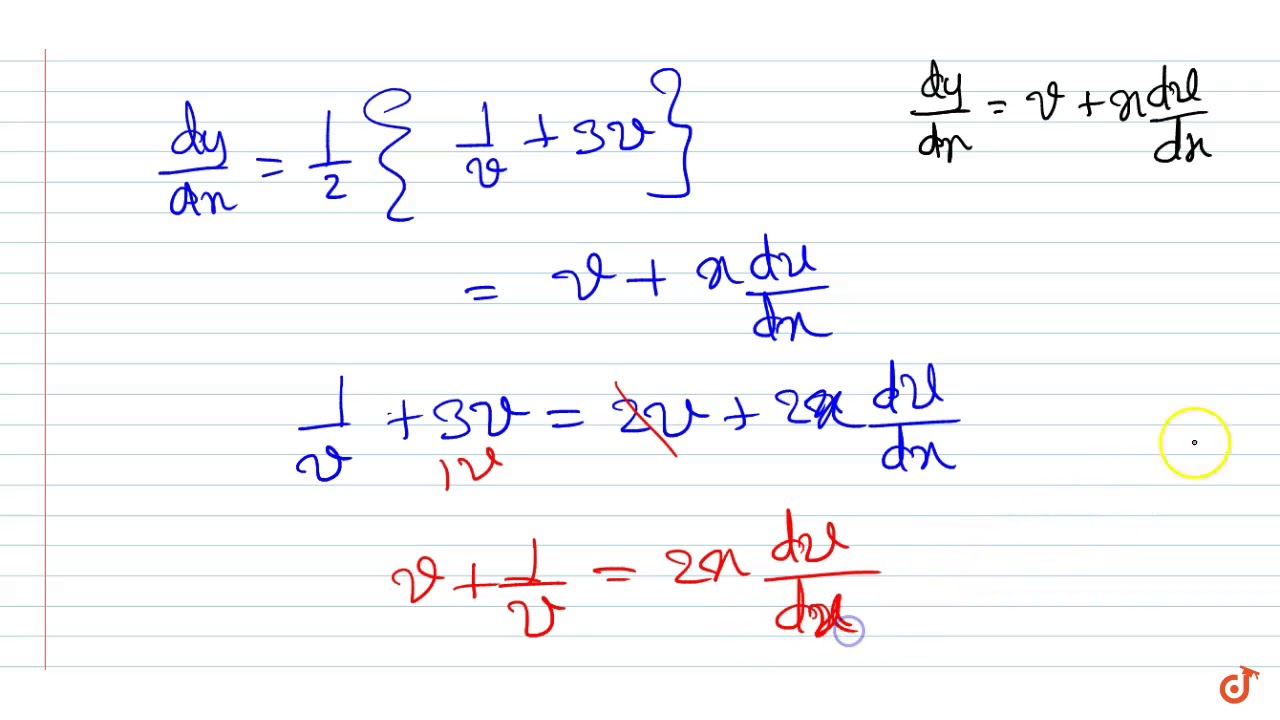 dy/dx = 1/2 { 1/v + 3v }
dy/dx = v + x dv/dx
= v + x dv/dx
1/v + 3v = 2v + 2x dv/dx
1v
v + 1/v = 2x dv/dx